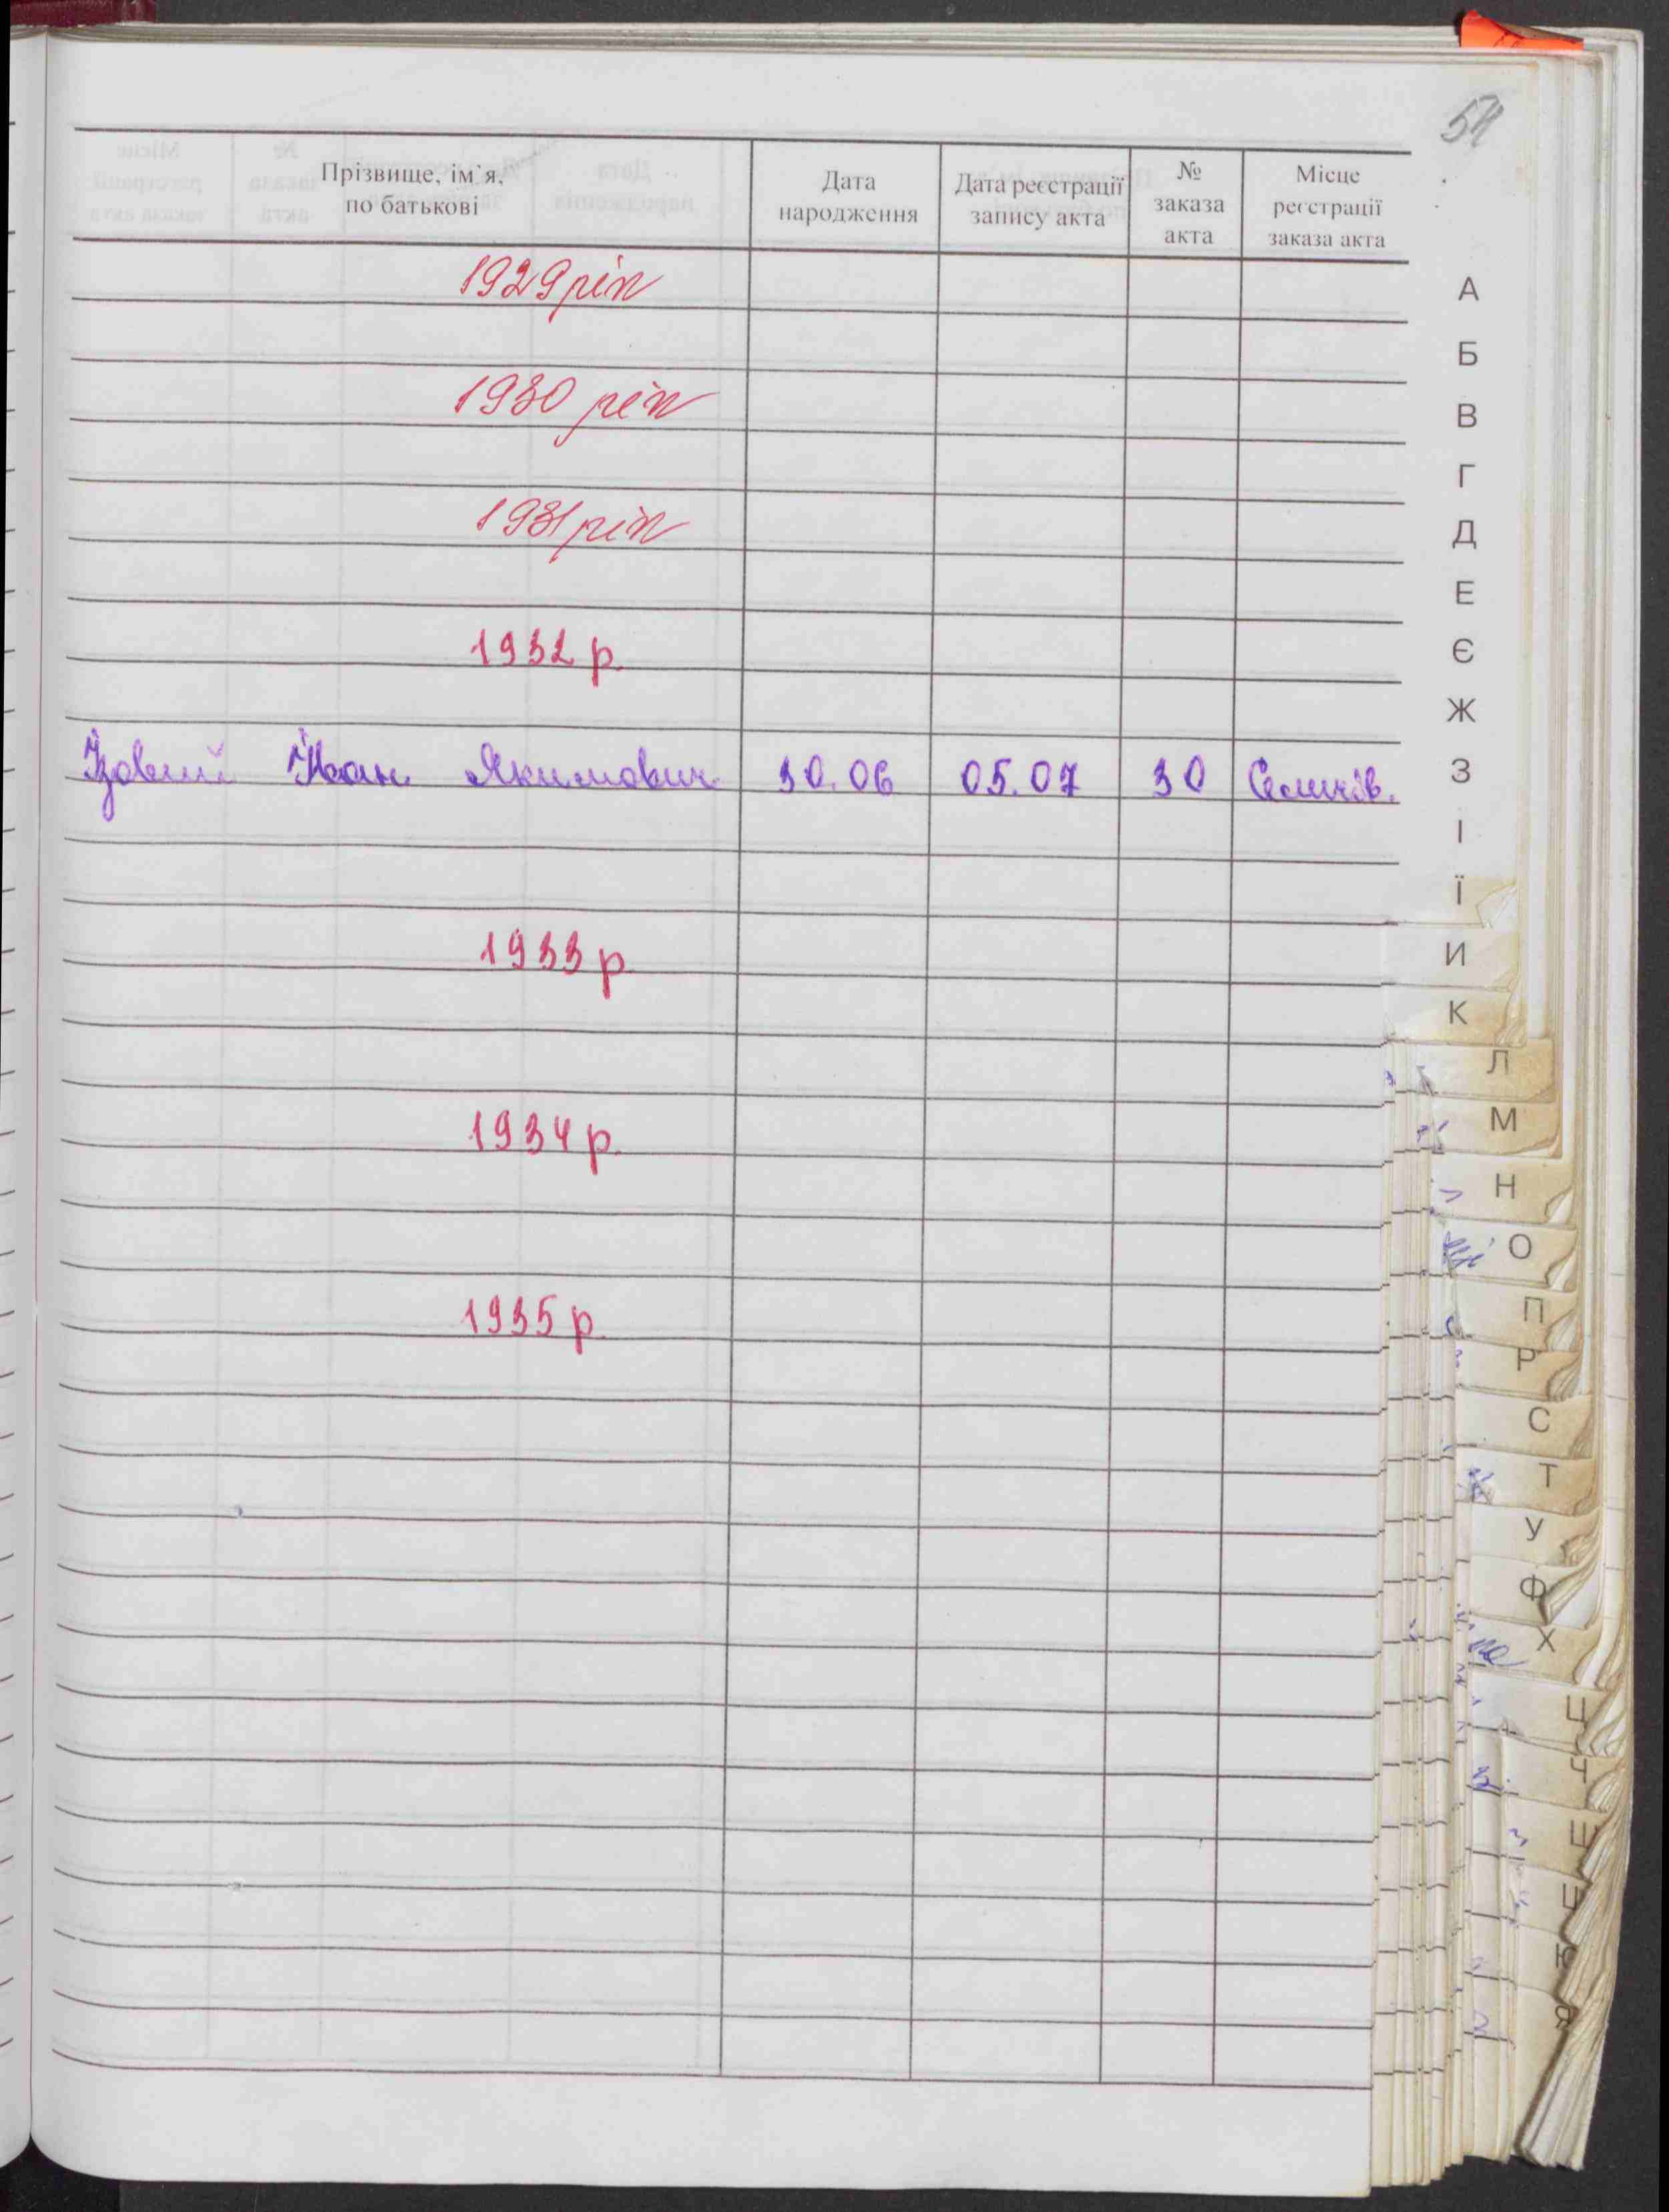 54
Прізвище, ім`я, по батькові
Дата народження
Дата реєстрації запису акта
№ заказа акта
Місце реєстрації заказа акта
1929 рік
1930 рік
1931 рік
1932 р.
Іван Якимович 30.06 05.07 30
1933 р.
1934 р.
1935 р.
А
Б
В
Г
Д
Е
Є
Ж
З
І
Ї
И
К
Л
М
Н
О
П
Р
С
Т
У
Ф
Х
Ц
Ч
Ю
Я